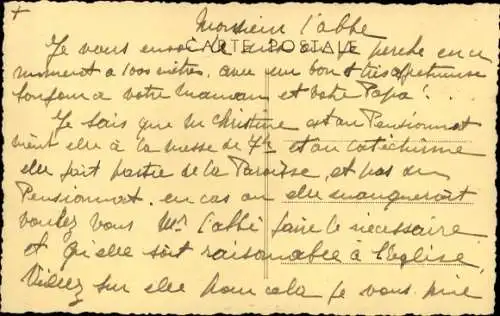 +
Monsieur l'abbé
CARTE POSTALE
Je vous envoie perché en ce
moment a 1000 mètres, avec un bon & très affectueuse
bonjour a votre Maman et votre Papa!..
Je sais que M Christine est au Pensionnat
vient elle à la messe de et au catéchisme
elle fait partie de la Paroisse, et pas du
Pensionnat, en cas ou elle manquerait
voulez vous Mr l'abbé faire le nécessaire
et qu'elle soit raisonable à l'Eglise,
Veillez sur elle pour cela je vous prie